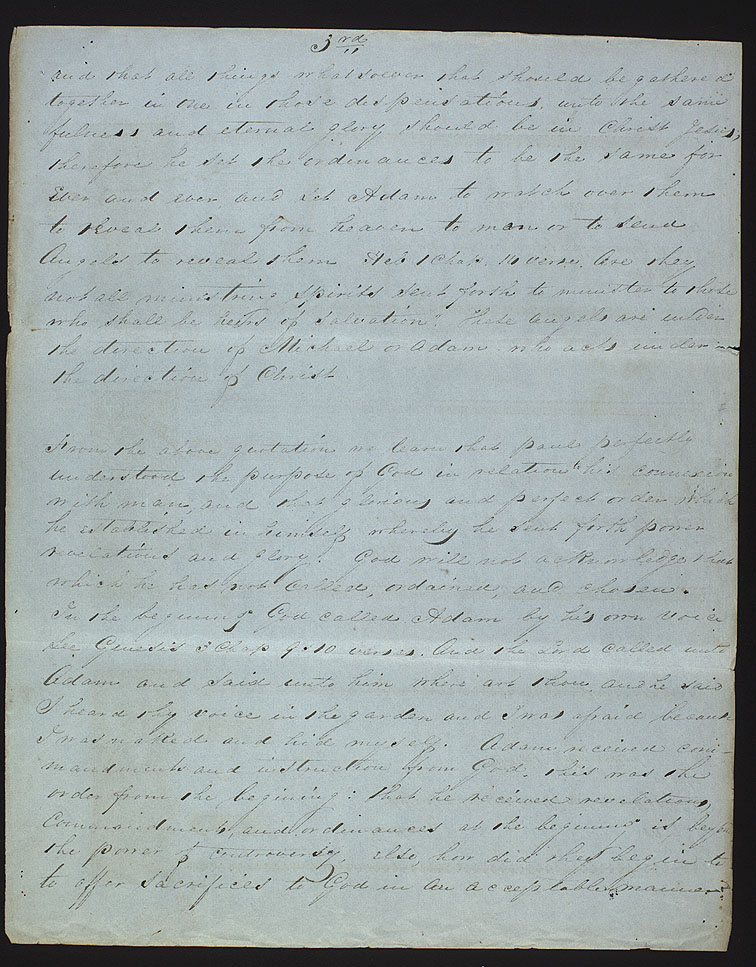 3rd
and that all things whatsoever that should be gathered
together in one in those despensations, unto the same
fulness and eternal glory should be in Christ Jesus,
therefore he set the ordinances to be the same for
Ever and ever and set Adam to watch over them
to reveal them from heaven to man or to send
Angels to reveal them Heb 1 Chap. 14 verse. Are they
not all ministring spirits sent forth to minister to those
who shall be heirs of salvation". These angels are under
the direction of Michael or Adam who acts under
the direction of Christ
From the above quotation we learn that paul perfectly
understood the purpose of God in relation to his connexion
with man, and that glorious and perfect order which
he established in himself whereby he sent forth power
revelations and glory. God will not acknowledge that
which he has not called, ordained, and chosen.
In the begining God called Adam by his own voice
See Genesis 3 Chap 9 & 10 verses. And the Lord called unto
Adam and said unto him where art thou and he said
I heard thy voice in the garden and I was afraid because
I was naked and hid myself. Adam received com-
mandments and instruction from God, this was the
order from the begining: that he received revelations,
Commandments, and ordinances at the begining is beyond
the power of controversy, else, how did they begin to
to offer Sacrifices to God in an acceptable manner